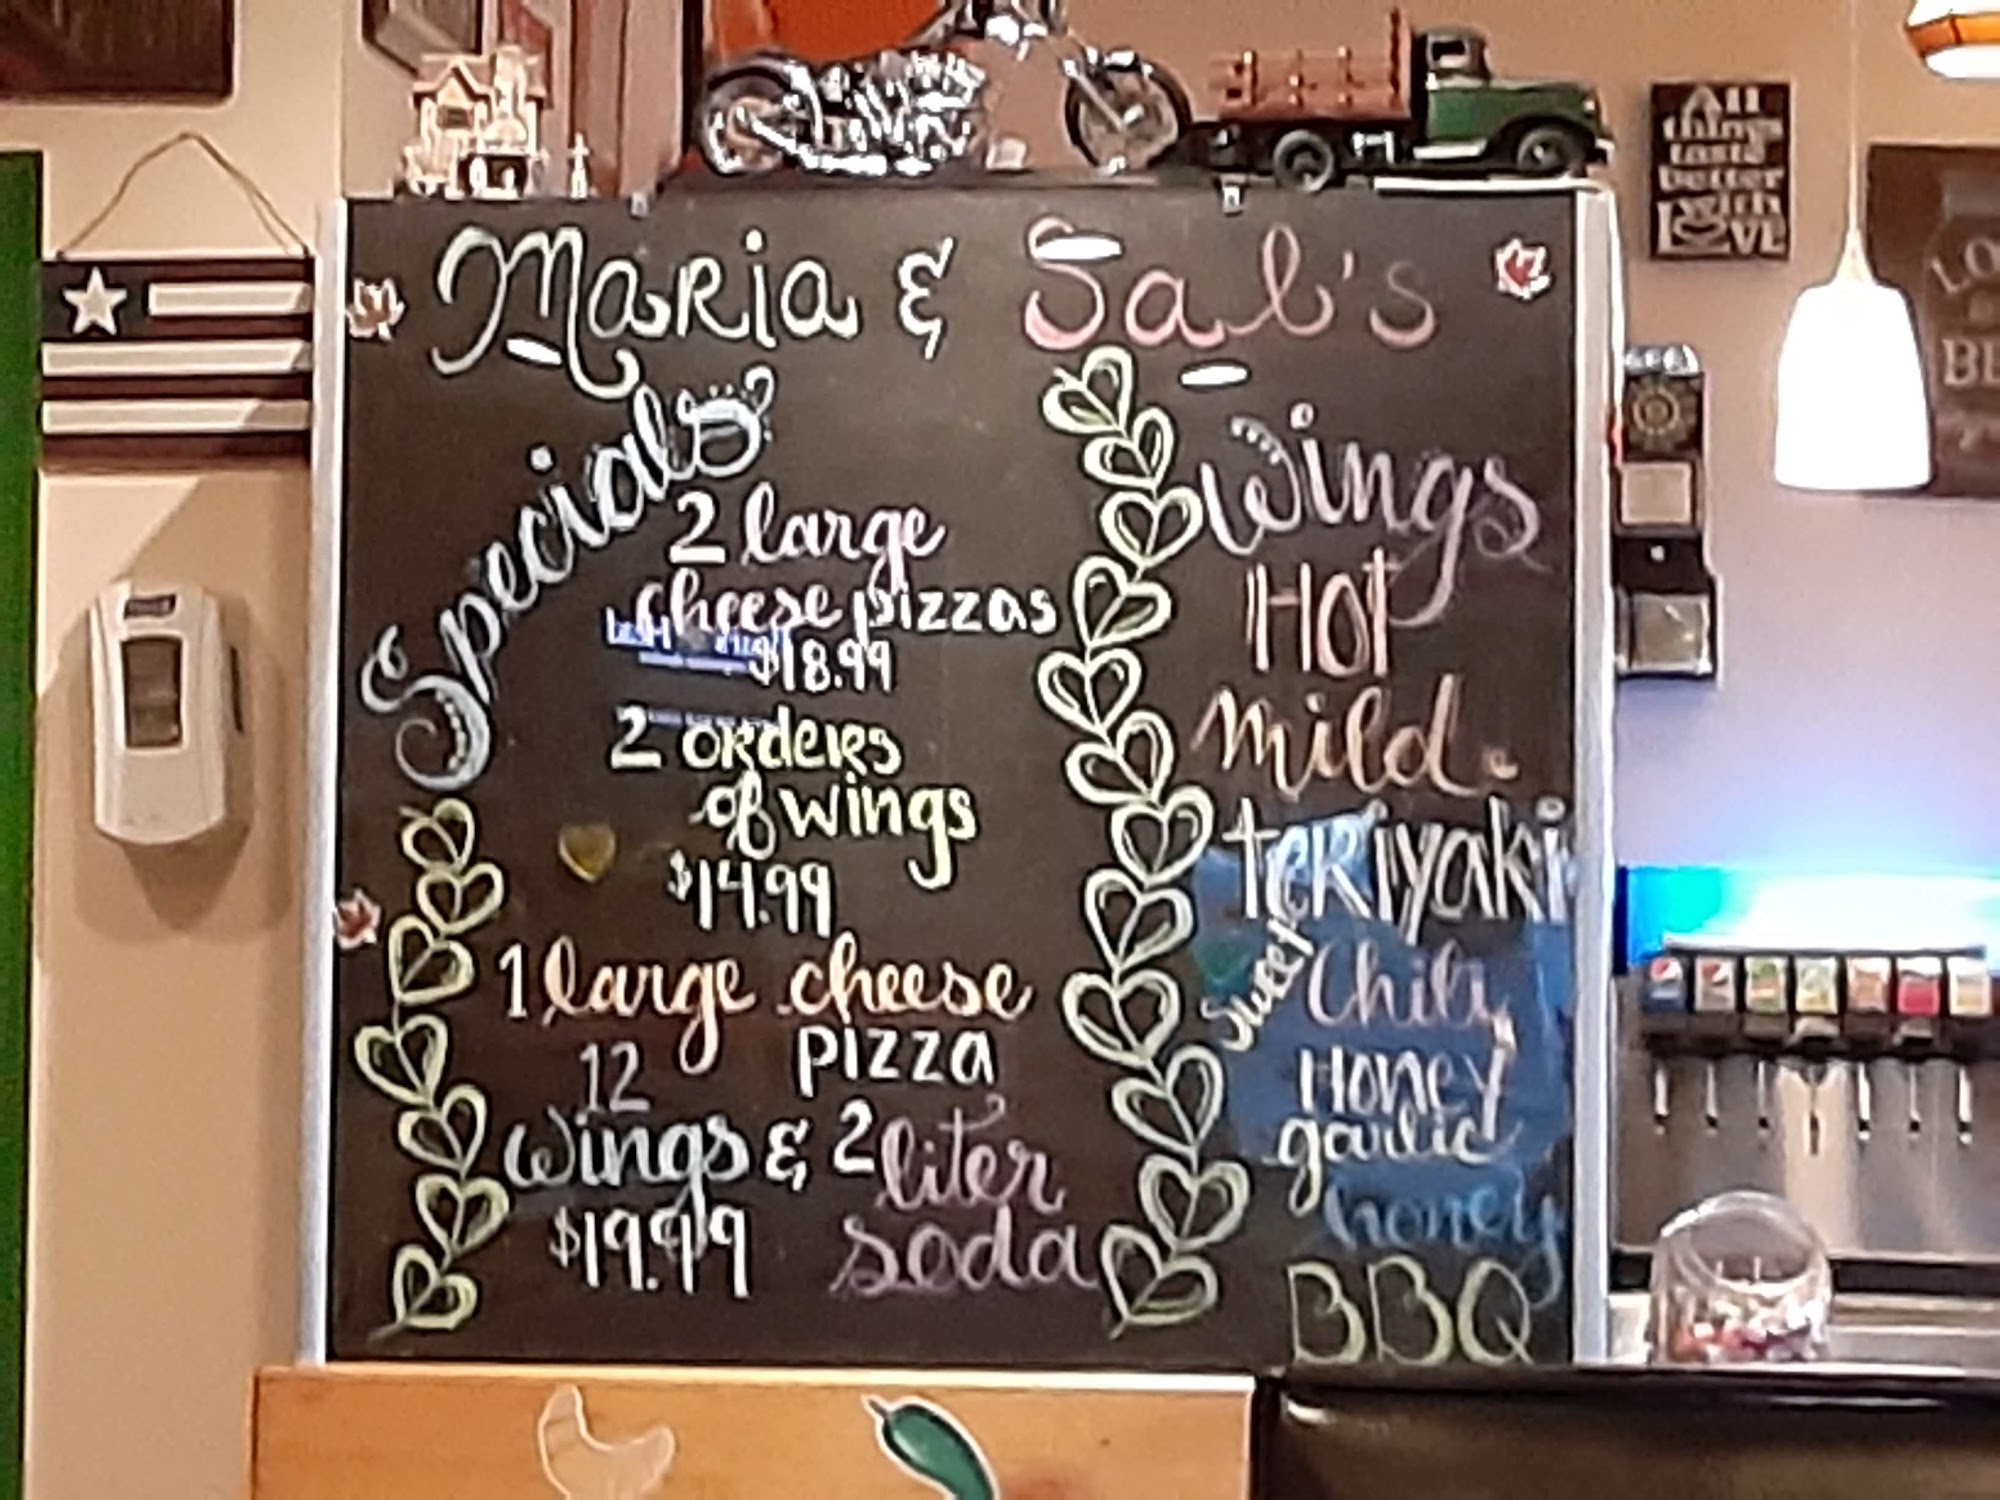 Maria & Sal's
Specials
2 large
cheese pizzas
$18.99
2 orders
of wings
$14.99
1 large cheese
pizza
12
wings & 2 liter
soda
$19.99
Wings
Hot
mild
teriyaki
Sweet Chili
Honey
garlic
honey
BBQ
All
things
taste
better
with
LOVE